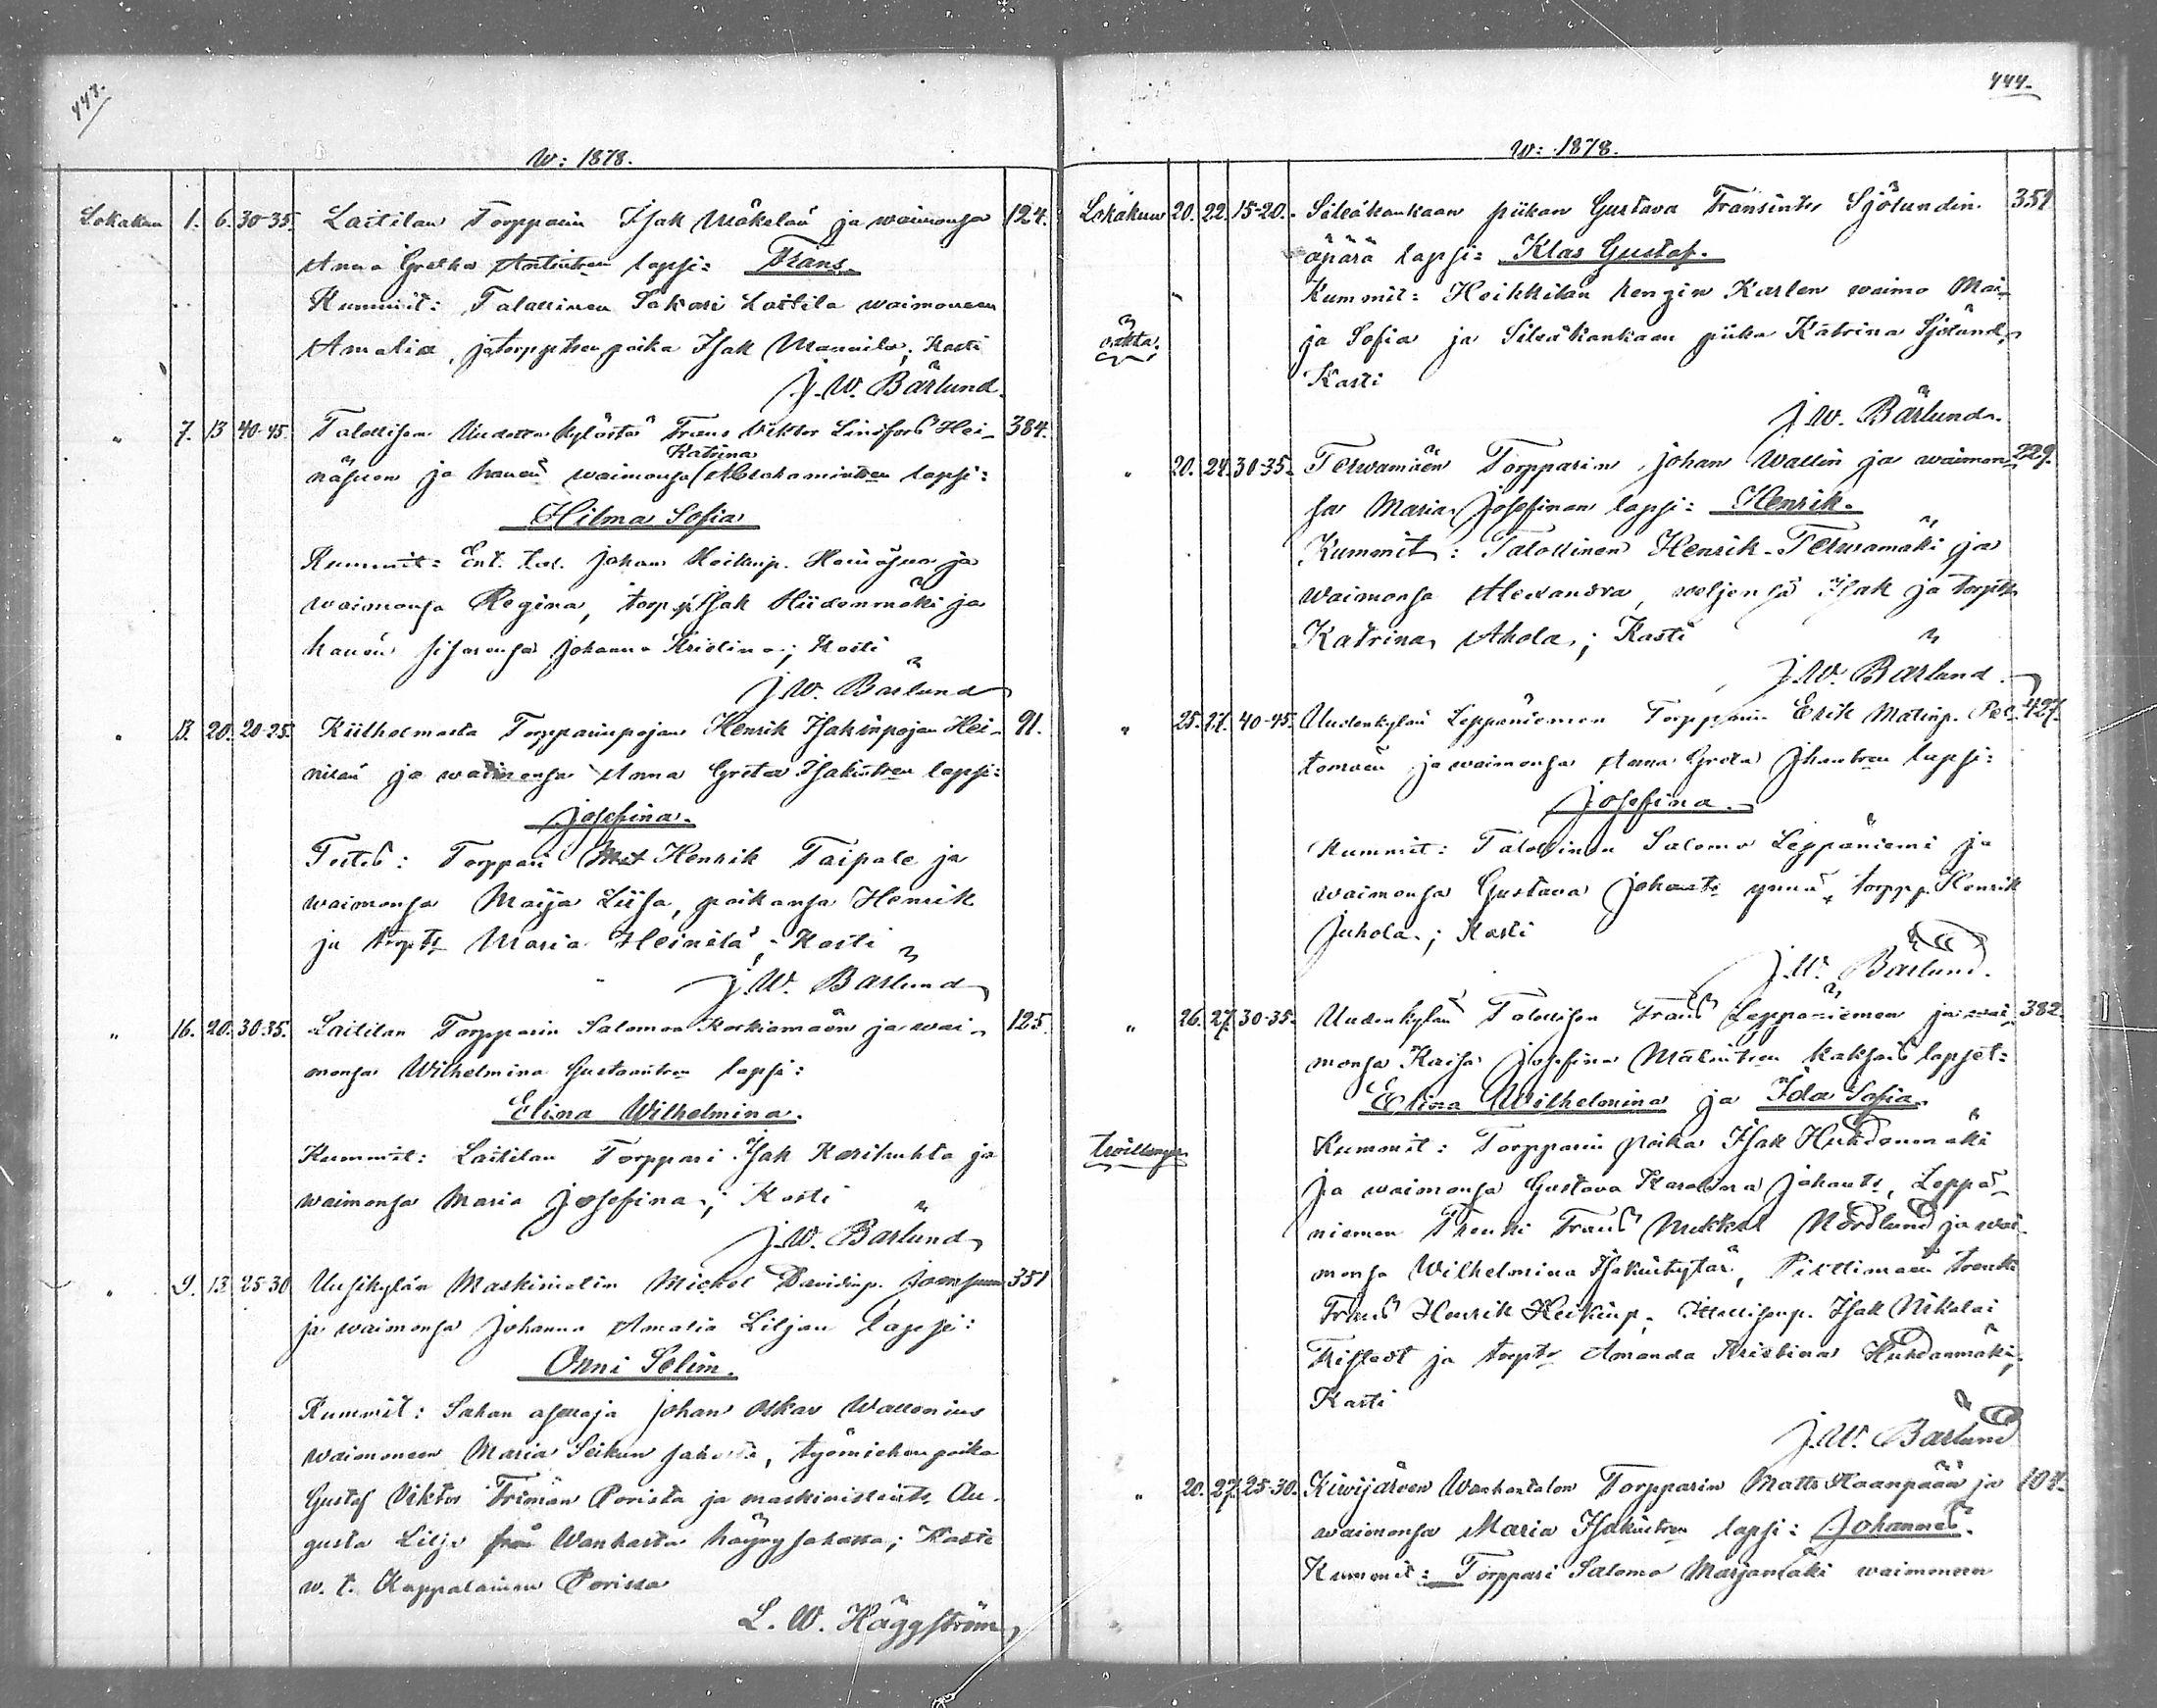 443.
W: 1878.
Lokakuu 1. 6. 30-35. Laitilan Torpparin Isak Mäkelän ja waimonsa 124.
Anna Gretha Antintren lapsi: Frans.
Kummit: Talollinen Sakari Laitila waimoneen
Amalia, ja torppitren poika Isak Mannila; Kasti
J. W. Bärlund.
" 7. 13 40-45. Talollisen Uudesta kylästä Frans Viktor Lindfors Hei- 384.
Katrina
näsuon ja hänen waimonsa Abrahamintren lapsi:
Hilma Sofia
Kummit: Ent. tal. Johan Heikinp. Heinäsuo ja
waimonsa Regina, torp. p. Isak Hiidenmäki ja
hänen sisarensa Johanna Kristina; Kasti
J. W. Bärlund
" 13. 20. 20-25. Kiilholmasta Torpparinpojan Henrik Isakinpojan Hei- 91.
nilän ja waimonsa Anna Greta Isakintren lapsi:
Josefina.
Testes: Torppari Henrik Taipale ja
waimonsa Maija Liisa, poikansa Henrik
ja torpts Maria Heinilä; Kasti
J. W. Bärlund
" 16. 20. 30-35. Laitilan Torpparin Salomon Korkiamäen ja wai- 125.
monsa Wilhelmina Gustavintren lapsi:
Elina Wilhelmina.
Kummit: Laitilan Torppari Isak Karihuhta ja
waimonsa Maria Josefina; Kasti
J. W. Bärlund
" 9. 13. 25-30 Uusikylän Maskinistin Michel Davidinp. 351
ja waimonsa Johanna Amalia Liljan lapsi:
Onni Selim.
Kummit: Sahan asettaja Johan Oskar Wallonius
waimoneen Maria Seikun sahalta, työmiehen poika
Gustaf Viktor Friman Porista ja maskinistints Au-
gusta Lilja från Wanhasta höyrysahassa; Kasti
w. t. Kappalainen Porissa
L. W. Häggström
444.
W: 1878.
Lokakuu 20. 22. 15-20. Siliäkankaan piikan Gustava Fransints Sjölundin 351.
äpärä lapsi: Klas Gustaf.
Kummit: Heikkilän rengin Karlen waimo Mai-
äkta. ja Sofia ja Siliäkankaan piika Katrina Sjölund,
Kasti
J. W. Bärlund.
" 20. 24. 30-35. Terwamäen Torpparin Johan Wallin ja waimon- 229.
sa Maria Josefinan lapsi: Henrik.
Kummit: Talollinen Henrik Terwamäki ja
waimonsa Alexandra, weljensä Isak ja torpts
Katrina Ahola; Kasti
J. W. Bärlund.
" 25. 27. 40-45. Uudenkylän Leppäniemen Torpparin Erik Matinp. Pel- 427.
tomäen ja waimonsa Anna Greta Jhantren lapsi:
Josefina.
Kummit: Talollinen Salomo Leppäniemi ja
waimonsa Gustava Johants ynnä torppp. Henrik
Juhola; Kasti
J. W. Bärlund.
" 26. 27. 30-35. Uudenkylän Talollisen Frans Leppäniemen ja wai- 382.
monsa Kaisa Josefina Matintren kaksois lapset:
Elina Wilhelmina ja Ida Sofia.
twillingar Kummit: Torpparin poika Isak Huhdanmäki
ja waimonsa Gustava Karolina Johants, Leppä-
niemen Trenki Frans Mikkel Nordlund ja wai-
monsa Wilhelmina Isakintytär, Pirttimäen trenki
Frans Henrik Heikinp. Itsellisenp. Isak Nikolai
ja torpts Amanda Kristiina Huhdanmäki;
Kasti
J. W. Bärlund
" 20. 27. 25-30. Kiwijärven Wanhantalon Torpparin Matts Haanpään ja 104.
waimonsa Maria Isakintren lapsi: Johannes.
Kummit: Torppari Salomo Marjamäki waimoneen